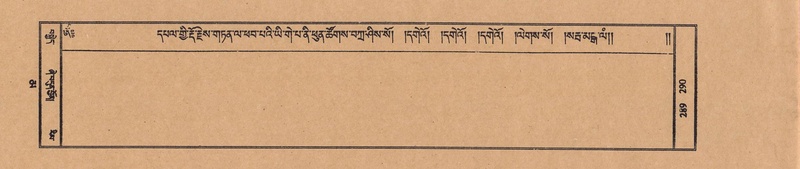 དཔལ་གྱི་རྡོ་རྗེས་གཏན་ལ་ཕབ་པའི་ཡི་གེ་པ་ནི་ཕུན་ཚོགས་བཀྲ་ཤིས་སོ། །དགེའོ། །དགེའོ། །དགེའོ། །ལེགས་སོ། །སརྦ་མངྒ་ལཾ།། །།
289 290